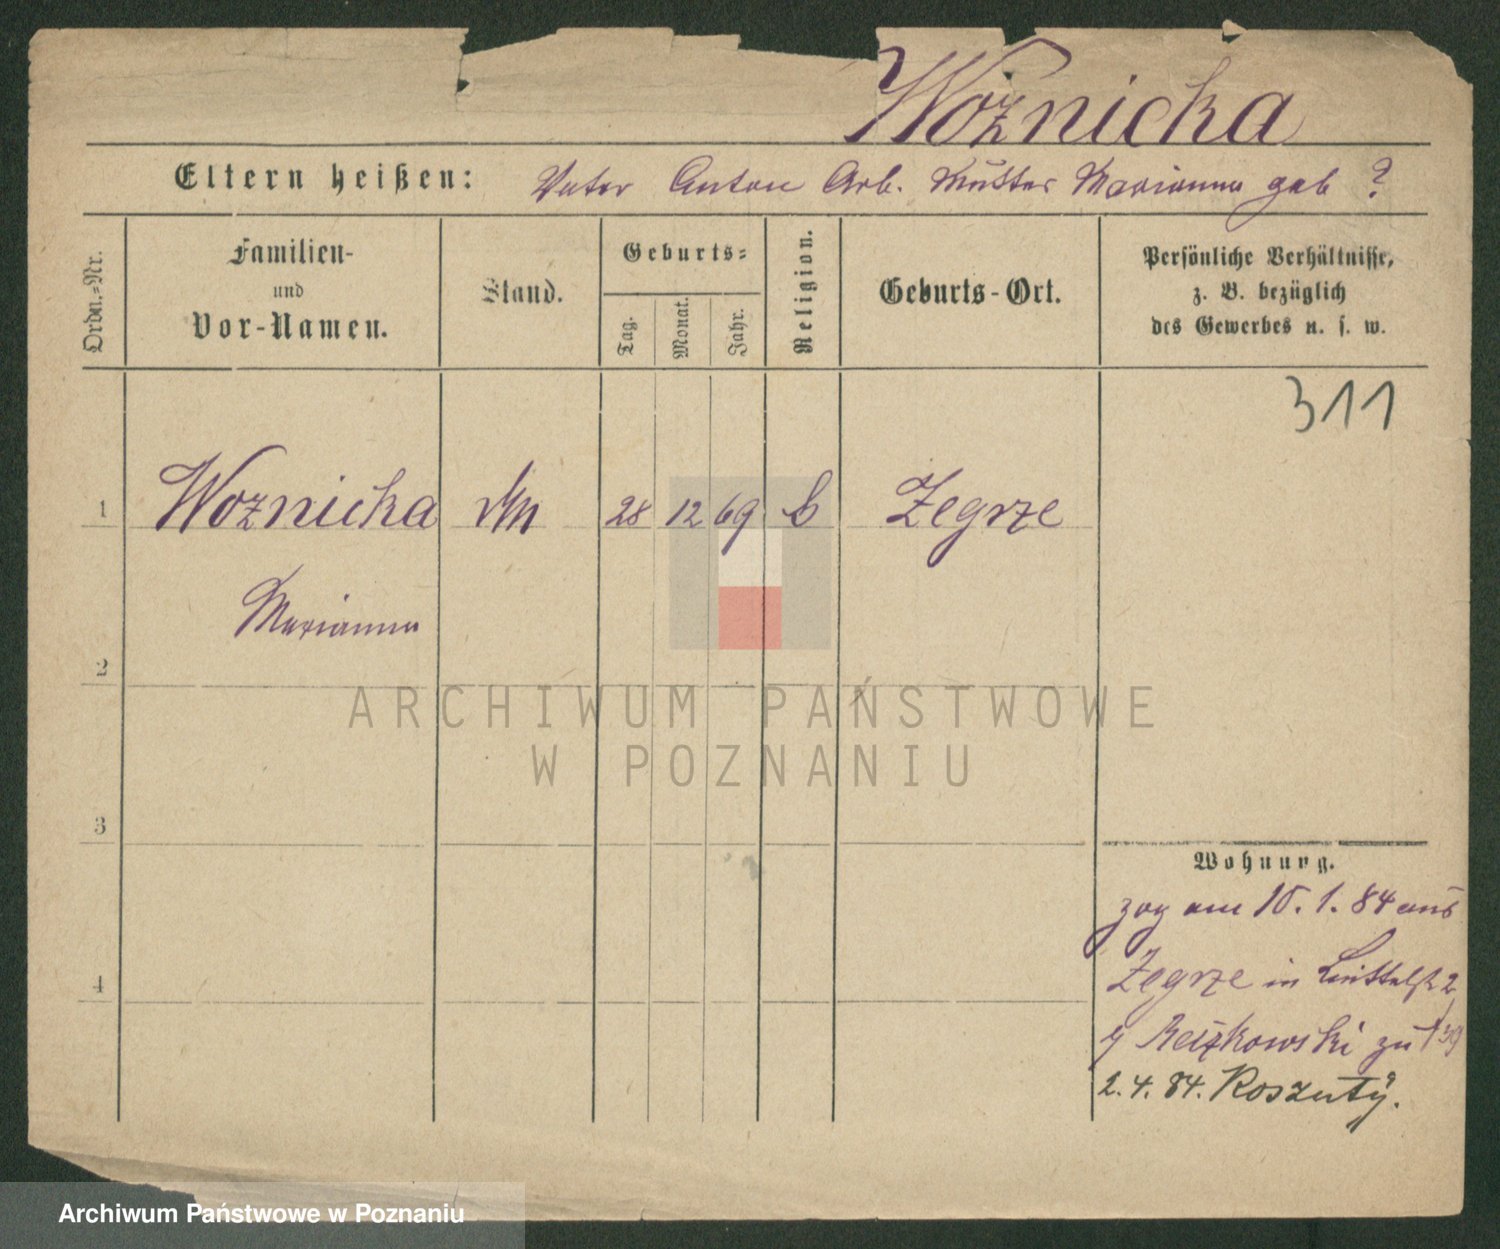 Woźnicka
Eltern heißen: Vater Anton Arb. Mutter Marianna geb ?
Ordn.-Nr.
Familien-
und
Vor-Namen.
Stand.
Geburts-
Tag.
Monat.
Jahr.
Religion.
Geburts-Ort.
Persönliche Verhältnisse,
z. B. bezüglich
des Gewerbes u. s. w.
311
1 Woznicka 28 12 69 Zegrze
Marianna
2
ARCHIWUM PAŃSTWOWE
W POZNANIU
3
Wohnung.
zog am 10. 1. 84 aus
Zegrze in 2
zu
4
2. 4. 84. Koszuty.
Archiwum Państwowe w Poznaniu